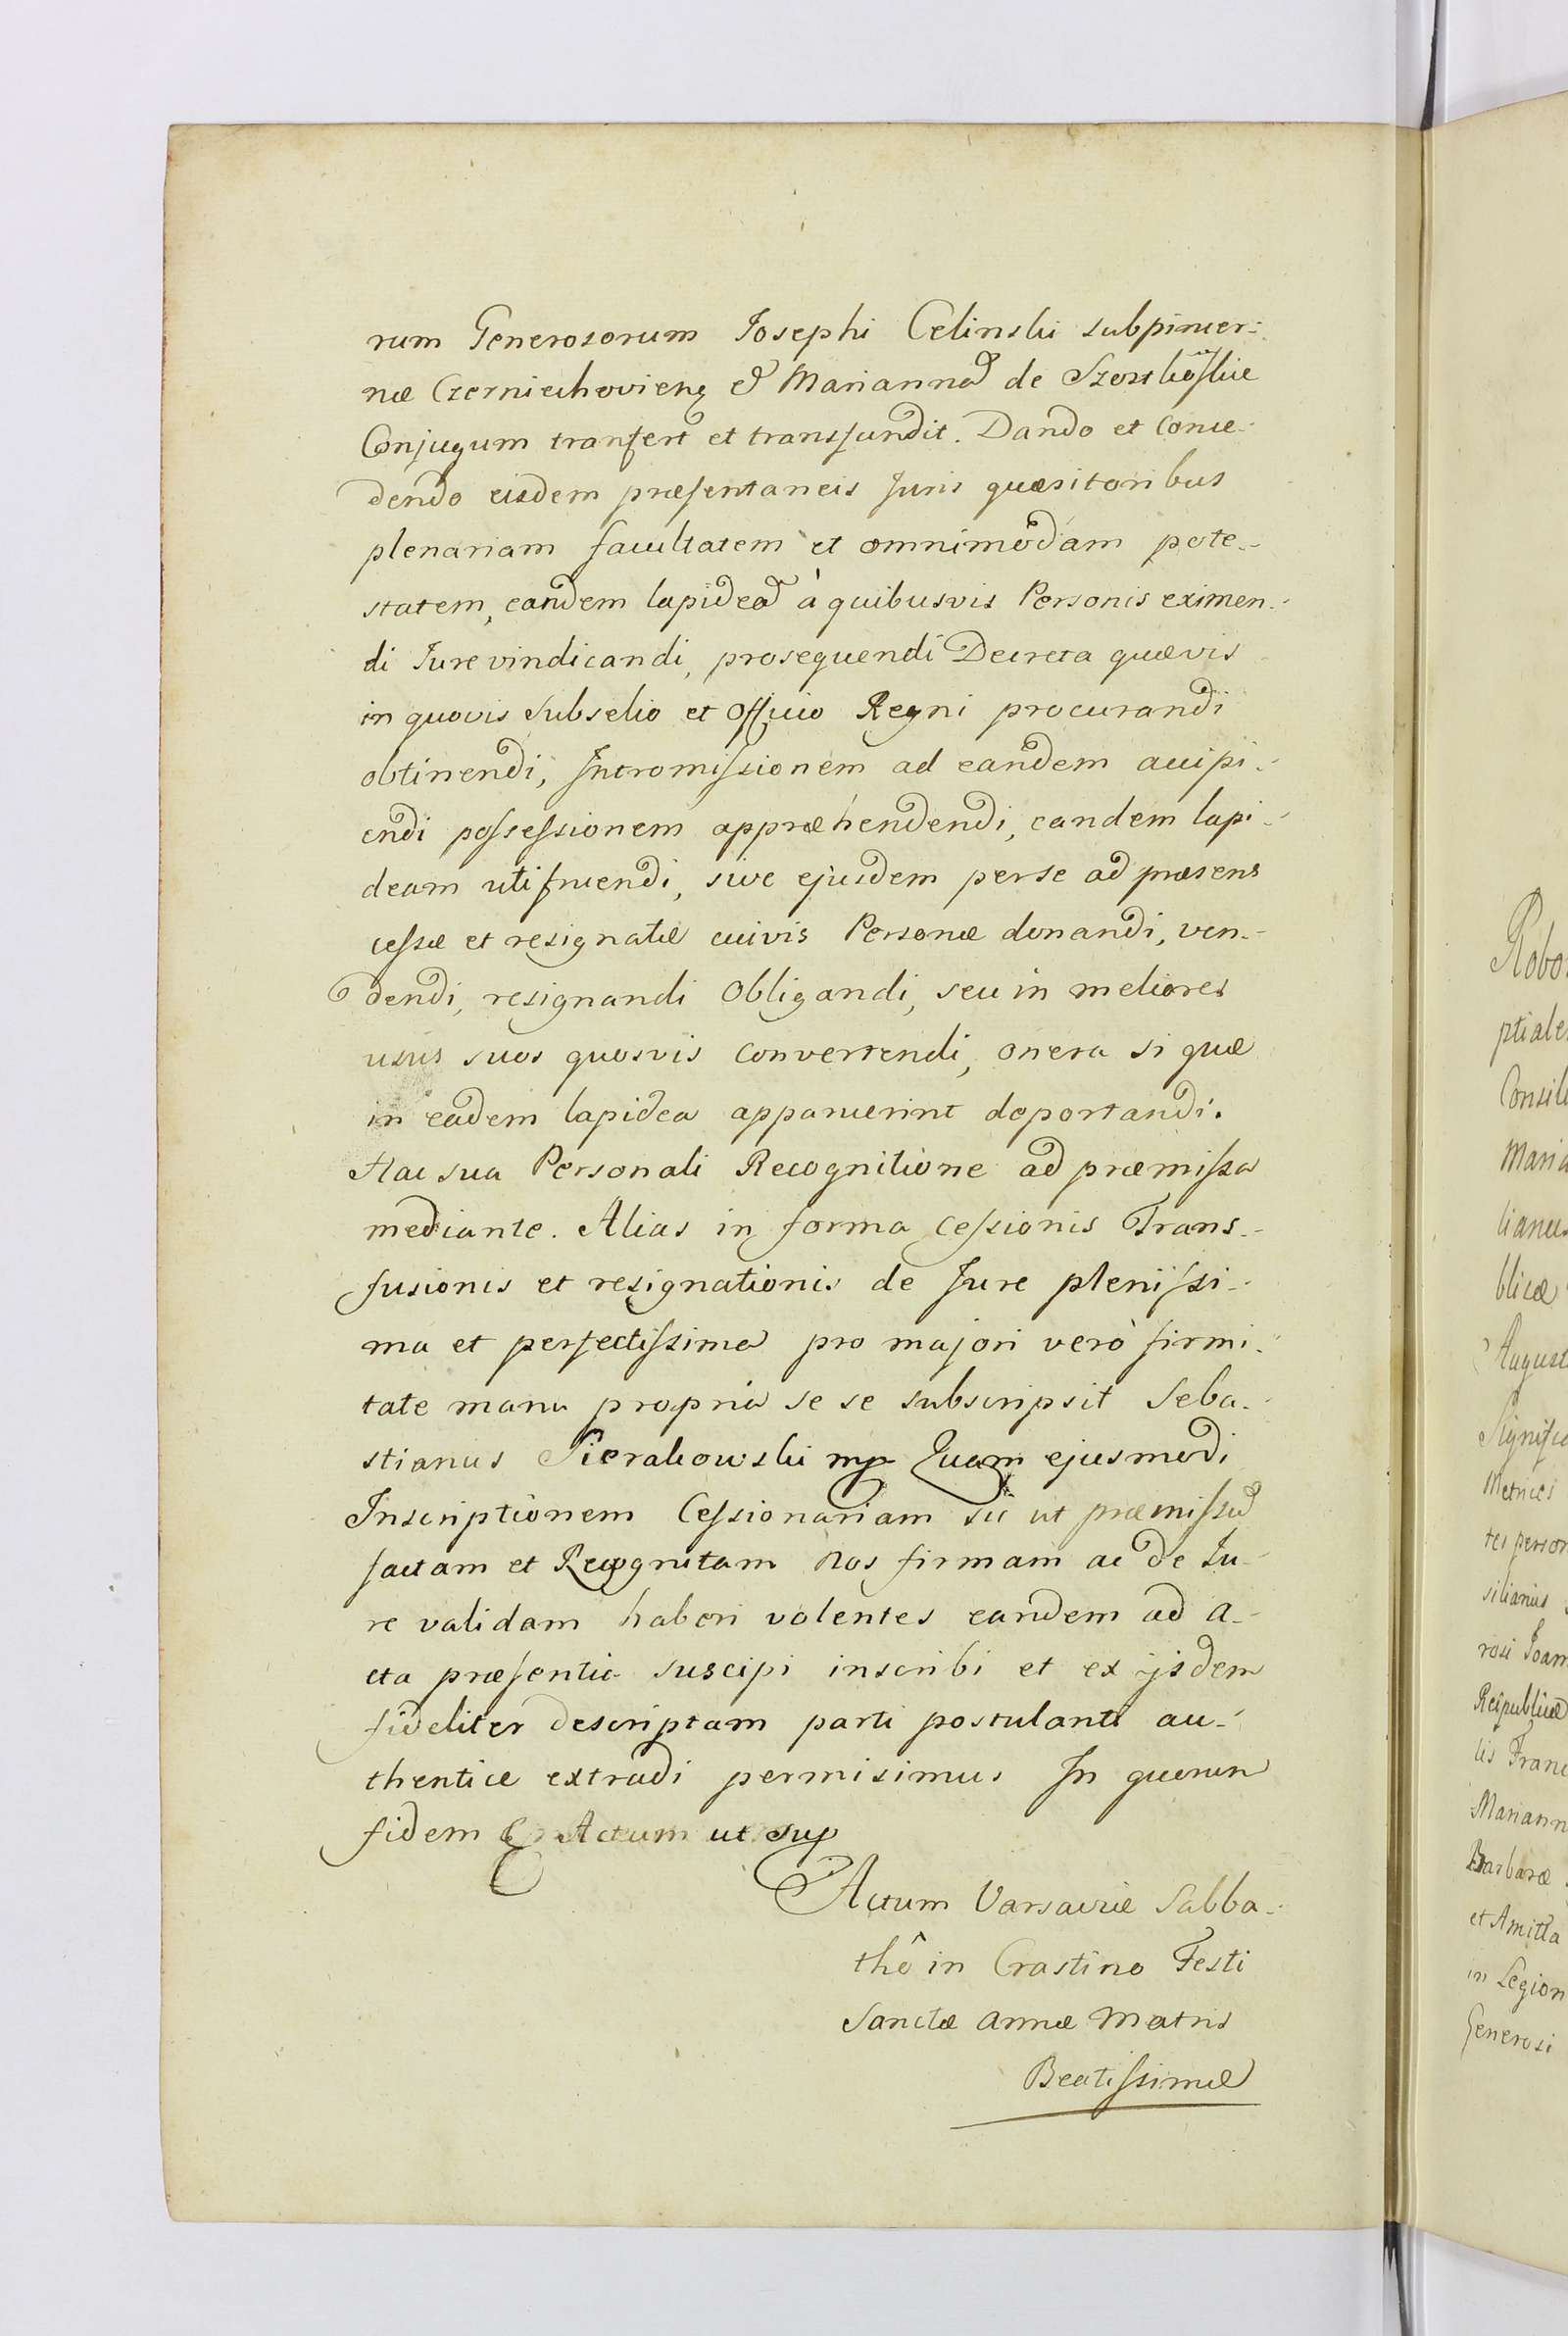 rum Generosorum Josephi Celinski subpincer-
næ Czerniechoviens & Marianna de
Conjugum tranfert et transfundit. Dando et conce-
dendo eisdem præsentaneis Juris quæsitoribus
plenariam facultatem et omnimodam pote-
statem, eandem lapidea à quibusvis Personis eximen-
di Jure vindicandi, prosequendi Decreta quævis
in quovis subselio et Officio Regni procurandi
obtinendi, Intromissionem ad eandem accipi-
endi possessionem appræhendendi, eandem lapi-
deam uti fruendi, sive ejusdem per se ad præsens
cessæ et resignatæ cuivis Personæ donandi, ven-
dendi, resignandi Obligandi, seu in meliores
usus suos quosvis convertendi, onera si quæ
in eadem lapidea apparuerint deportandi.
Hac sua Personali Recognitione ad præmissa
mediante. Alias in forma Cessionis Trans-
fusionis et resignationis de Jure plenissi-
ma et perfectissima pro majori verò firmi-
tate manu propria se se subscripsit Seba-
stianus Sierakowski mp Quam ejusmodi
Inscriptionem Cessionariam sic ut præmissum
factam et Recognitam Nos firmam ac de Ju-
re validam haberi volentes eandem ad a-
cta præsentia suscipi inscribi et ex ijsdem
fideliter descriptam parti postulanti au-
thenticè extradi permisimus In quorum
fidem & Actum ut sup
Actum Varsaviæ Sabba-
thô in Crastino Festi
Sanctæ Annæ Matris
Beatissimæ
Robo
ptiale
Consili
Maria
lianus
blicæ
August
Signific
Metrices
tes person
siliarius
rosi Joan
Reipublicæ
lis Franc
Mariann
Barbaræ
et Amitta
in Legion
Generosi